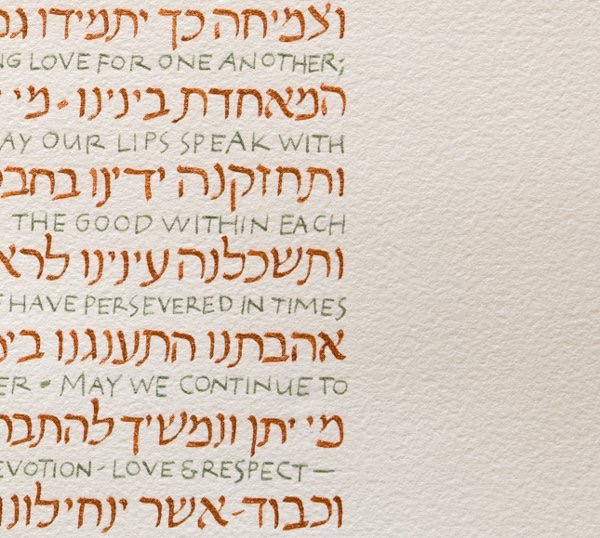 וצמיחה כך יתמידו גם
NG LOVE FOR ONE ANOTHER;
המאחדת בינינו - מי
AY OUR LIPS SPEAK WITH
ותחזקנה ידינו בחב
THE GOOD WITHIN EACH
ותשכלנה עינינו לרא
HAVE PERSEVERED IN TIMES
אהבתנו התענגנו בימ
ER • MAY WE CONTINUE TO
מי יתן ונמשיך להתבר
EVOTION - LOVE & RESPECT —
וכבוד - אשר ינחילונו